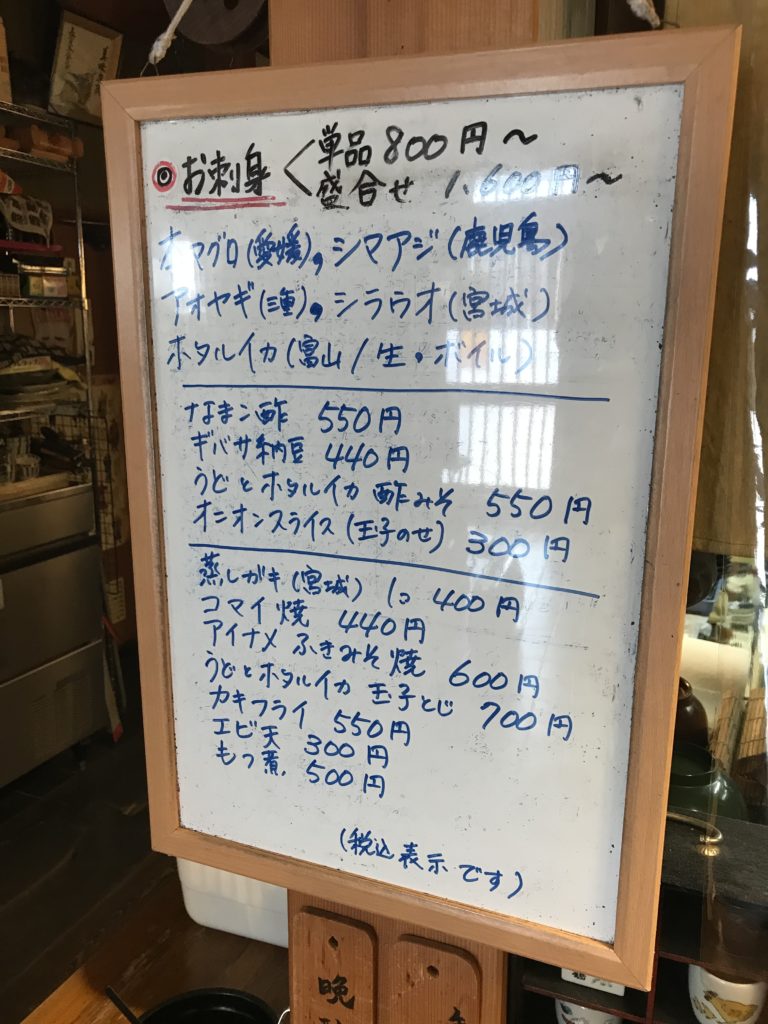 ◎お刺身＜単品800円〜
盛合せ 1,600円〜
本マグロ(愛媛)、シマアジ(鹿児島)
アオヤギ(三重)、シラウオ(宮城)
ホタルイカ(富山/生・ボイル)
なまこ酢 550円
ギバサ納豆 440円
うどとホタルイカ 酢みそ 550円
オニオンスライス(玉子のせ) 300円
蒸しガキ(宮城) 1コ 400円
コマイ焼 440円
アイナメ ふきみそ焼 600円
うどとホタルイカ 玉子とじ 700円
カキフライ 550円
エビ天 300円
もつ煮 500円
(税込表示です)
晩